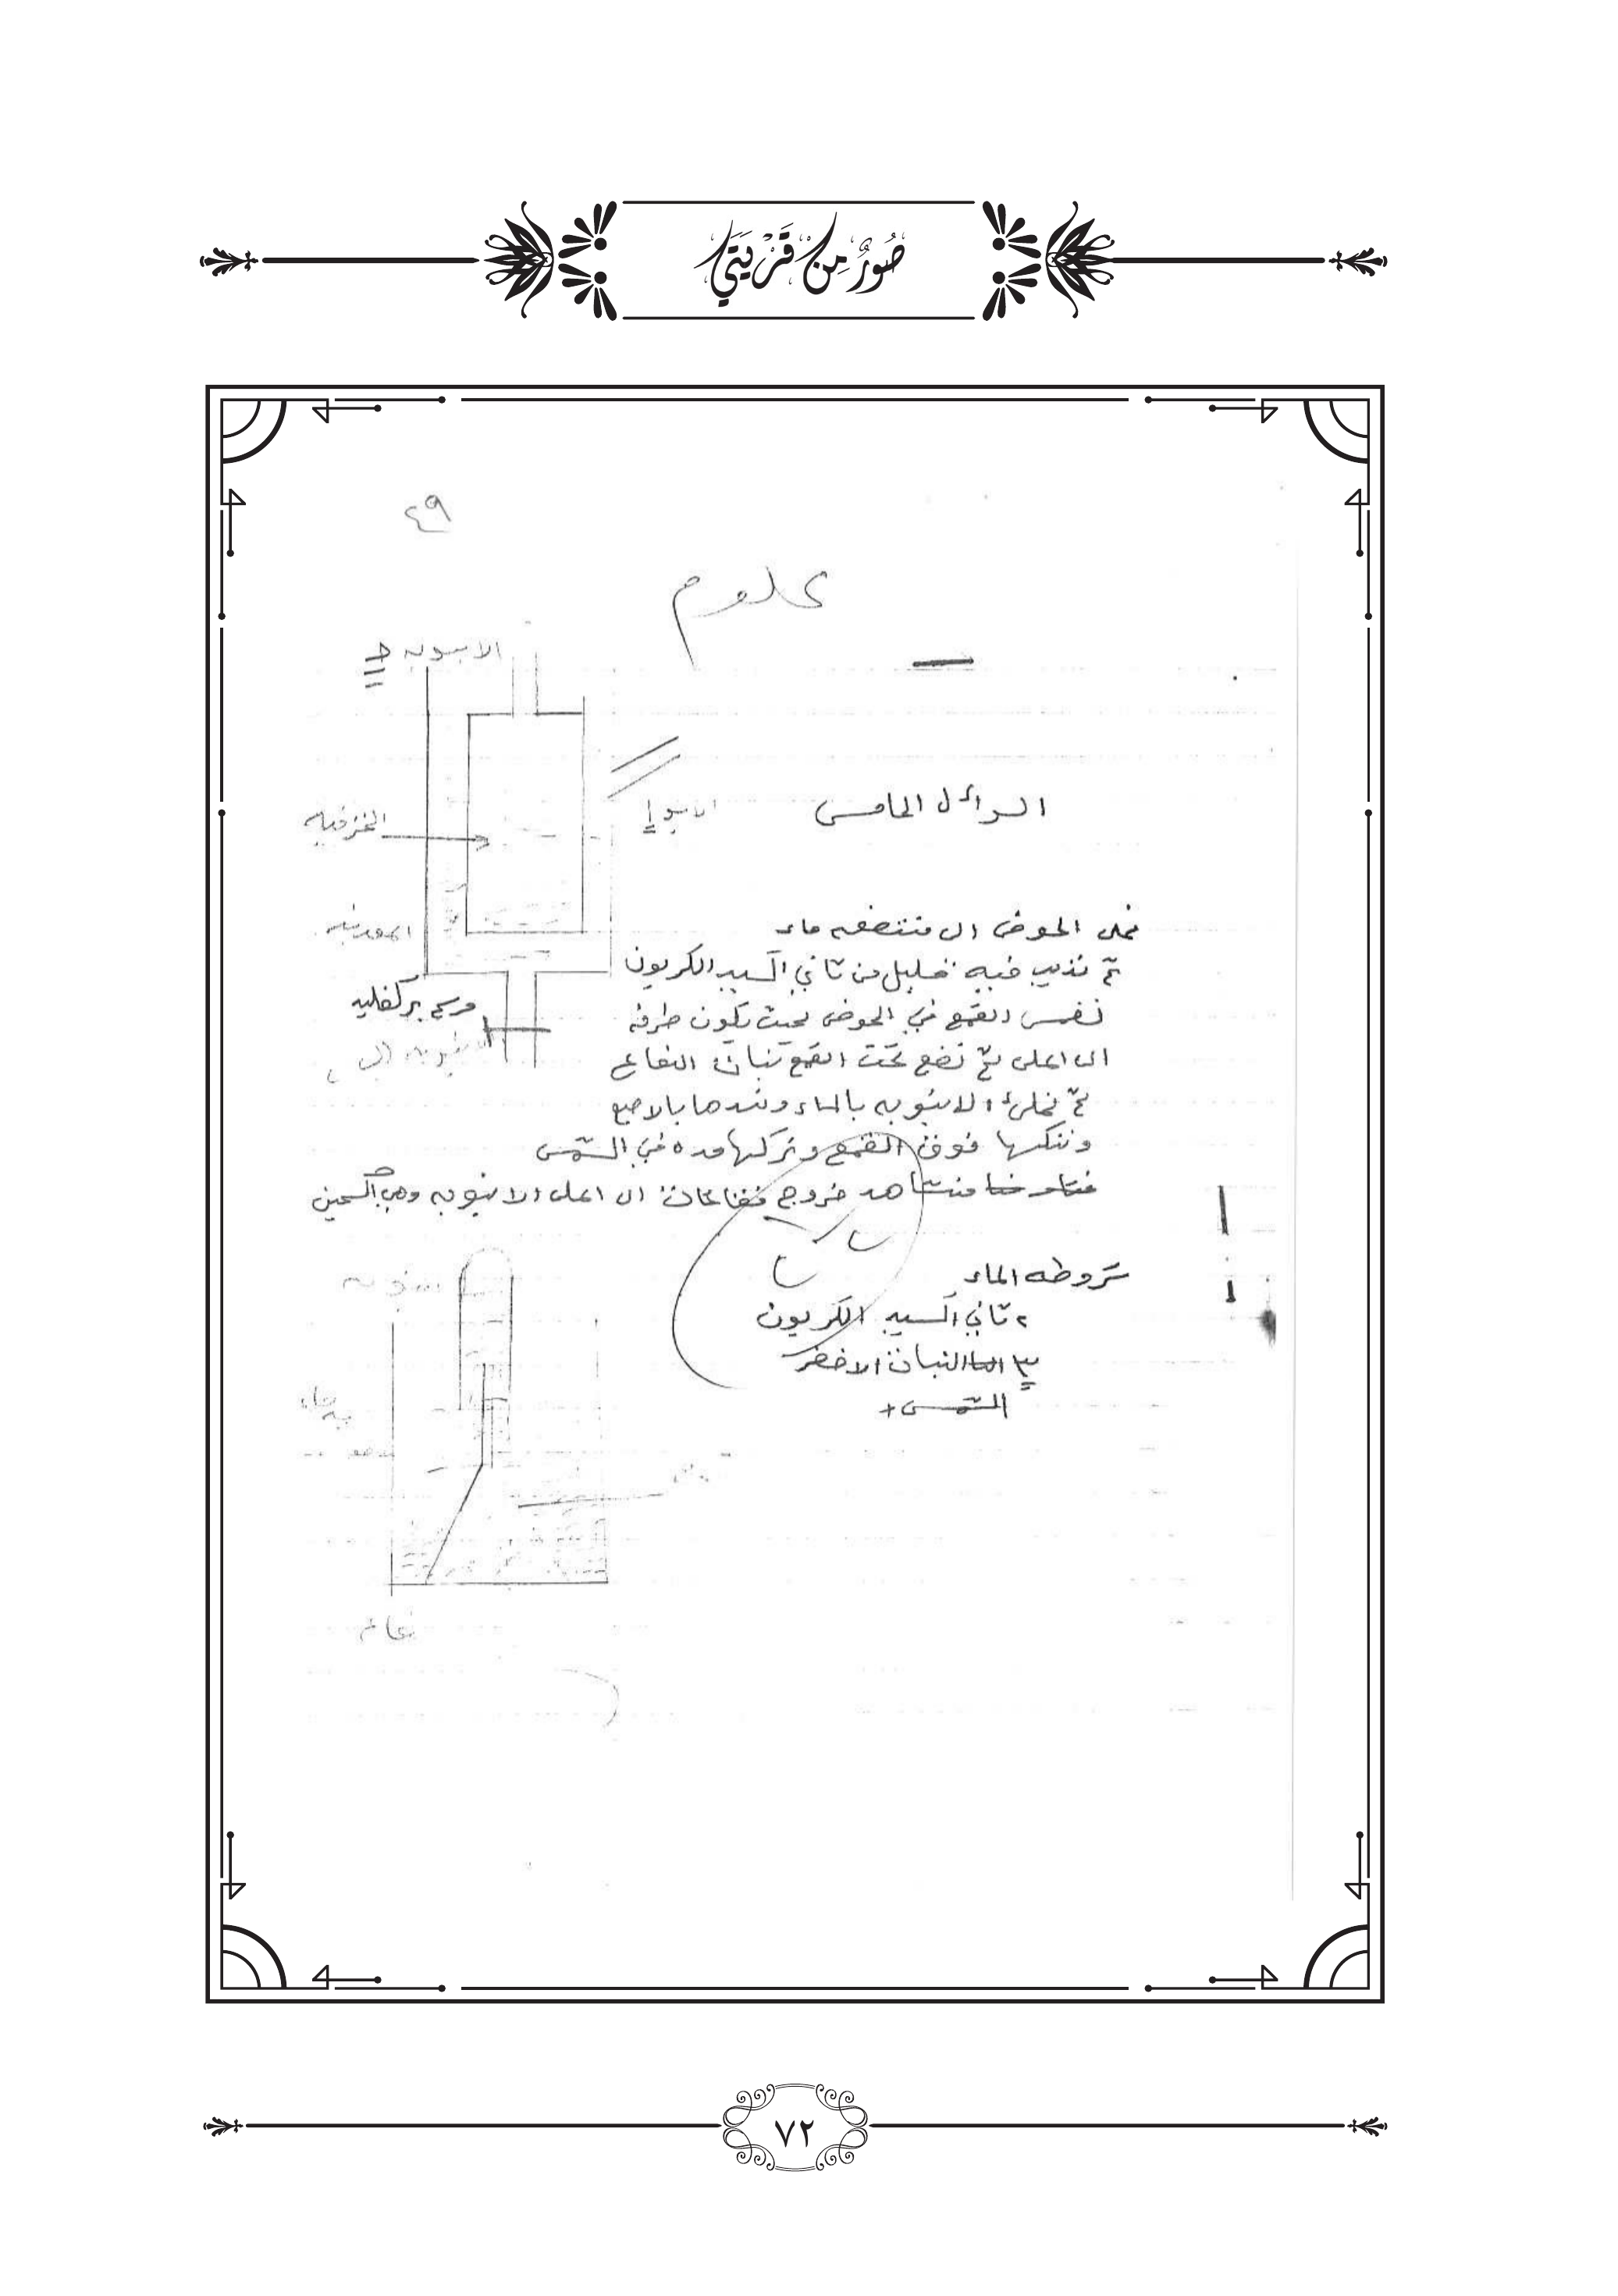 صُوَرٌ مِن قَرْيَتِي
٤٩
علوم
الانبوبه ج
الانبو أ
الخزفيه
السوائل الخامس
المعدنيه
نملى الحوض الى منتصفه ماء
ثم نذيب فيه قليل من ثاني اكسيد الكربون
نغمس القمع في الحوض بحيث تكون طرفه
الى اعلى ثم نضع تحت القمع نبات النعناع
ثم نملئ الانبوبه بالماء ونسدها بالاصبع
وننكسها فوق القمع ونتركها مده في الشمس
فنشاهد خروج فقاعات الى اعلى الانبوبه وهي اكسجين
شروطه الماء
٢ ثاني اكسيد الكربون
٣ النبات الاخضر
الشمس
٧٢